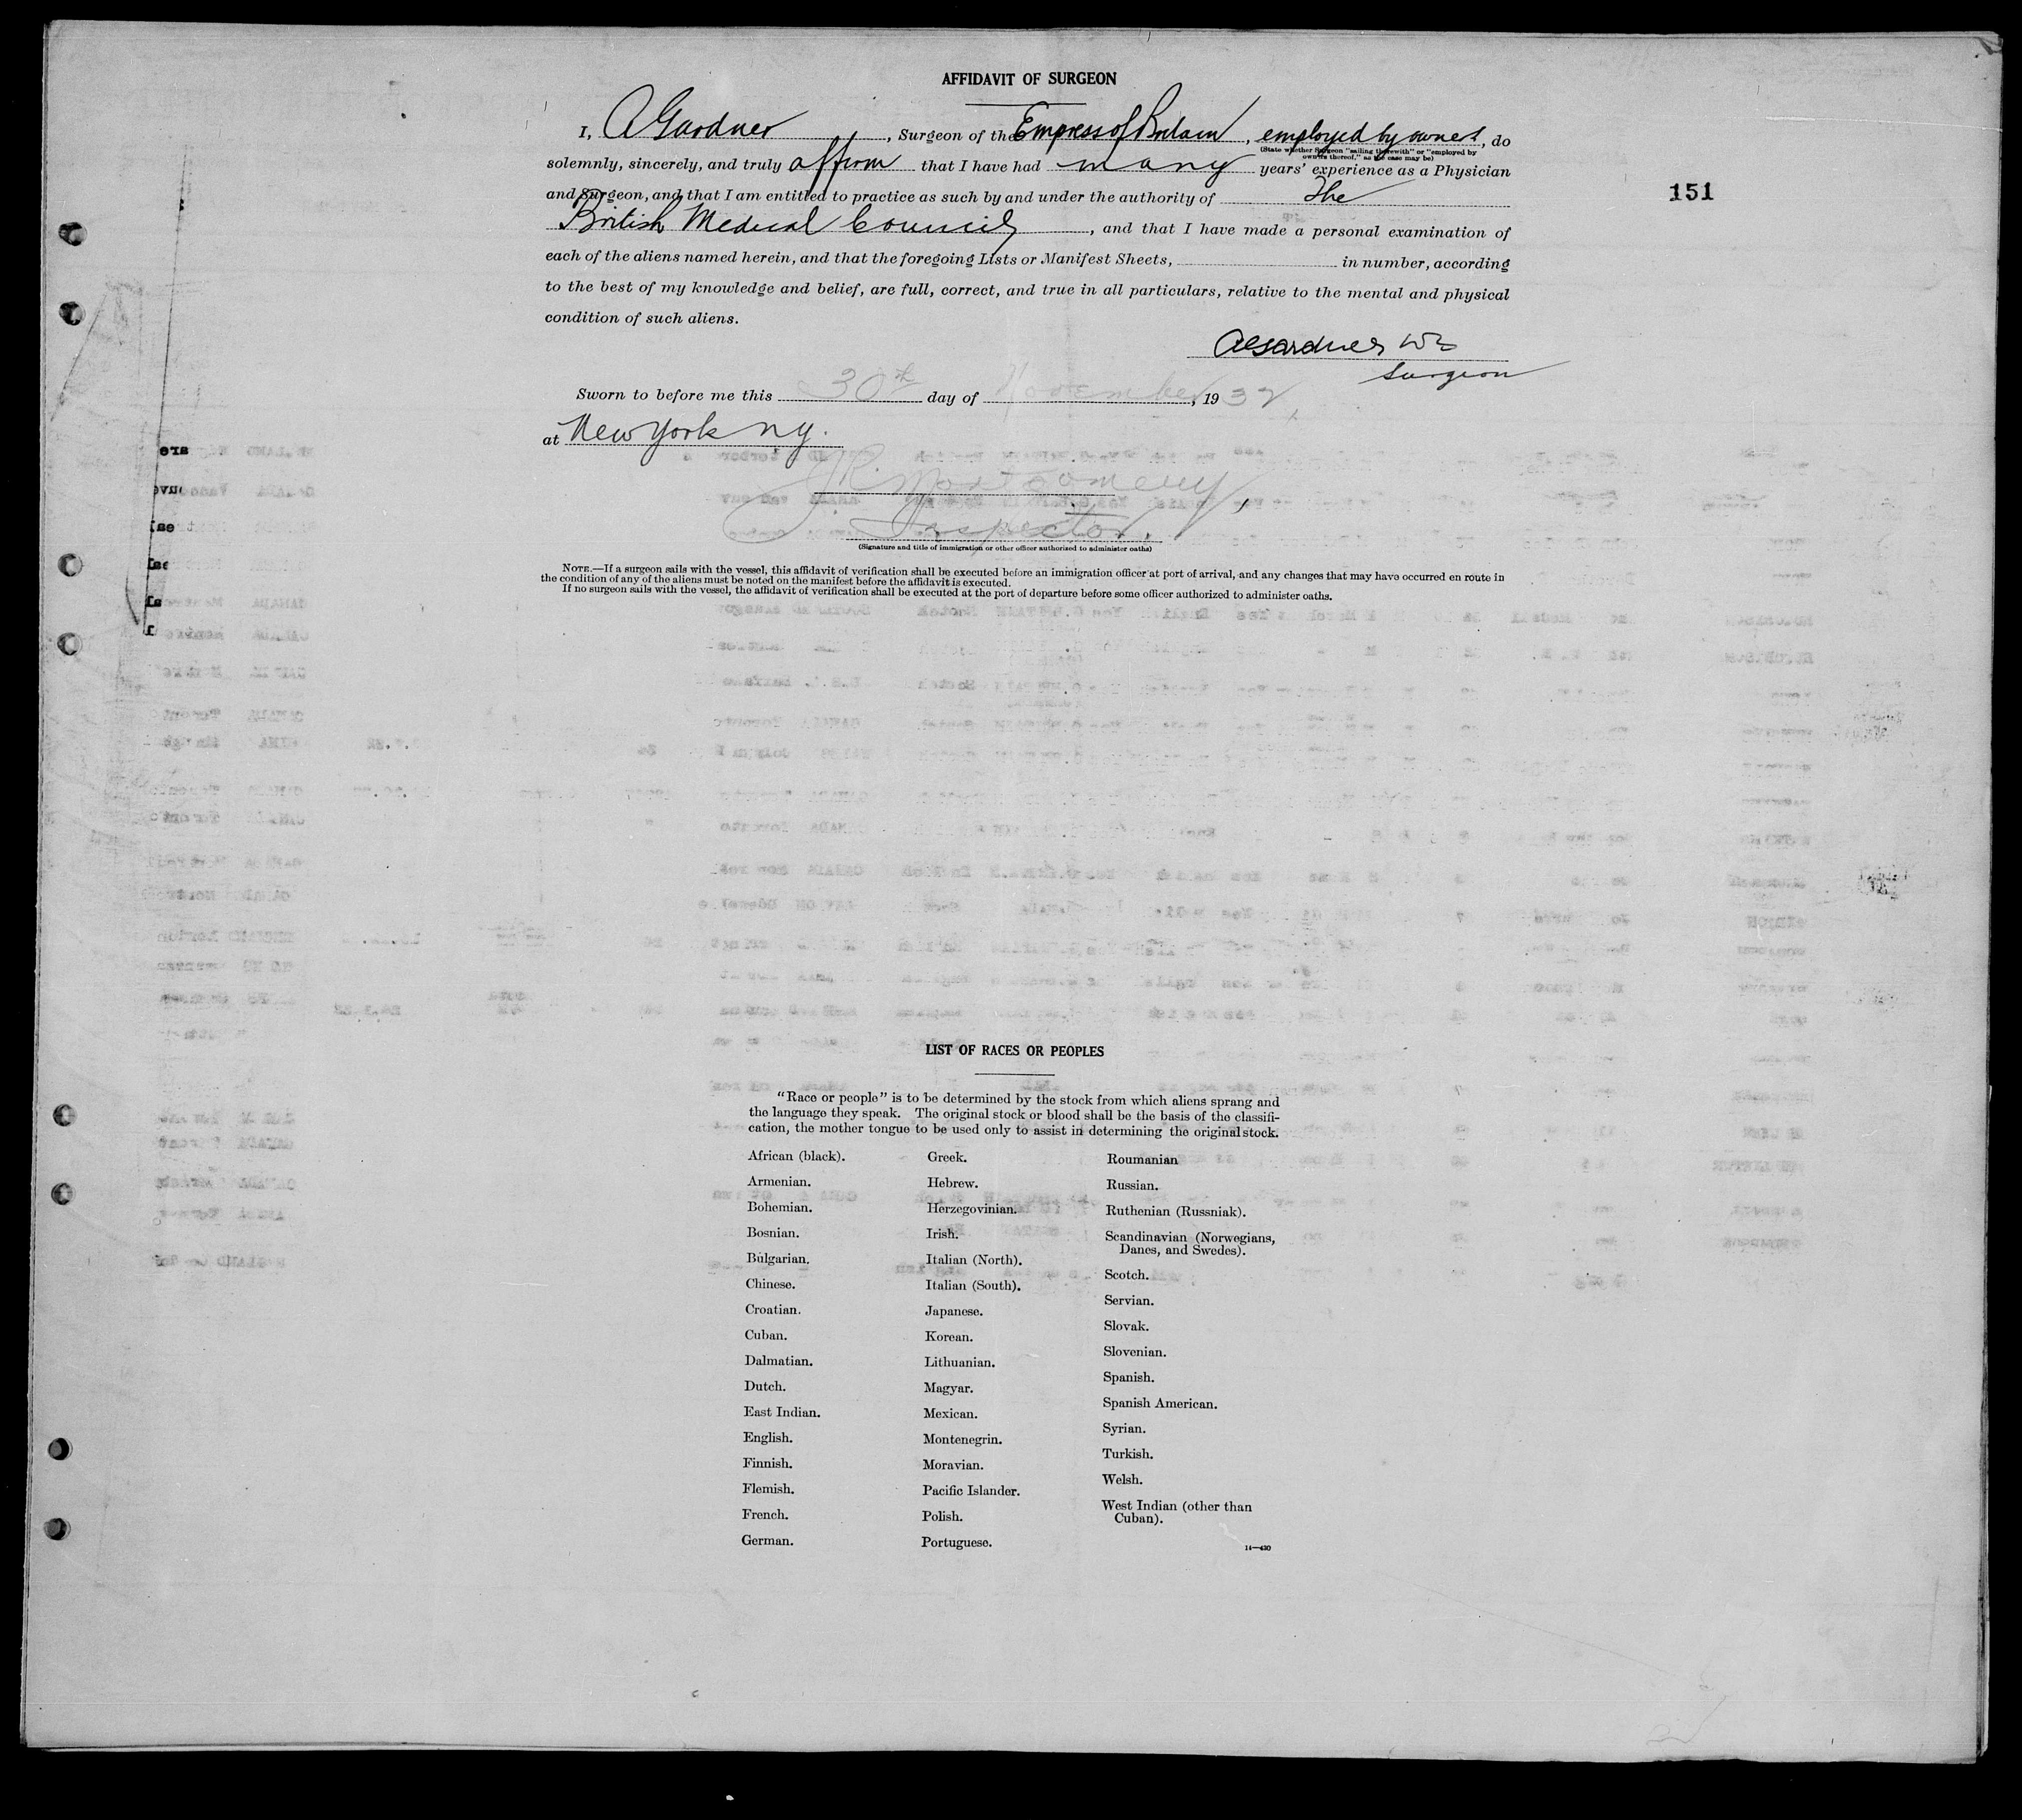 AFFIDAVIT OF SURGEON
I, A Gardner, Surgeon of the Empress of Britain, employed by owners, do
(State whether Surgeon "sailing therewith" or "employed by
owners thereof," as the case may be)
solemnly, sincerely, and truly affirm that I have had many years' experience as a Physician
and Surgeon, and that I am entitled to practice as such by and under the authority of The
151
British Medical Council, and that I have made a personal examination of
each of the aliens named herein, and that the foregoing Lists or Manifest Sheets, in number, according
to the best of my knowledge and belief, are full, correct, and true in all particulars, relative to the mental and physical
condition of such aliens.
A Gardner
Surgeon
Sworn to before me this 30th day of November, 1932,
at New York N.Y.
J.R. Montgomery,
Inspector.
(Signature and title of immigration or other officer authorized to administer oaths)
NOTE.—If a surgeon sails with the vessel, this affidavit of verification shall be executed before an immigration officer at port of arrival, and any changes that may have occurred en route in
the condition of any of the aliens must be noted on the manifest before the affidavit is executed.
If no surgeon sails with the vessel, the affidavit of verification shall be executed at the port of departure before some officer authorized to administer oaths.
LIST OF RACES OR PEOPLES
"Race or people" is to be determined by the stock from which aliens sprang and
the language they speak. The original stock or blood shall be the basis of the classifi-
cation, the mother tongue to be used only to assist in determining the original stock.
African (black).
Armenian.
Bohemian.
Bosnian.
Bulgarian.
Chinese.
Croatian.
Cuban.
Dalmatian.
Dutch.
East Indian.
English.
Finnish.
Flemish.
French.
German.
Greek.
Hebrew.
Herzegovinian.
Irish.
Italian (North).
Italian (South).
Japanese.
Korean.
Lithuanian.
Magyar.
Mexican.
Montenegrin.
Moravian.
Pacific Islander.
Polish.
Portuguese.
Roumanian
Russian.
Ruthenian (Russniak).
Scandinavian (Norwegians,
Danes, and Swedes).
Scotch.
Servian.
Slovak.
Slovenian.
Spanish.
Spanish American.
Syrian.
Turkish.
Welsh.
West Indian (other than
Cuban).
14—430